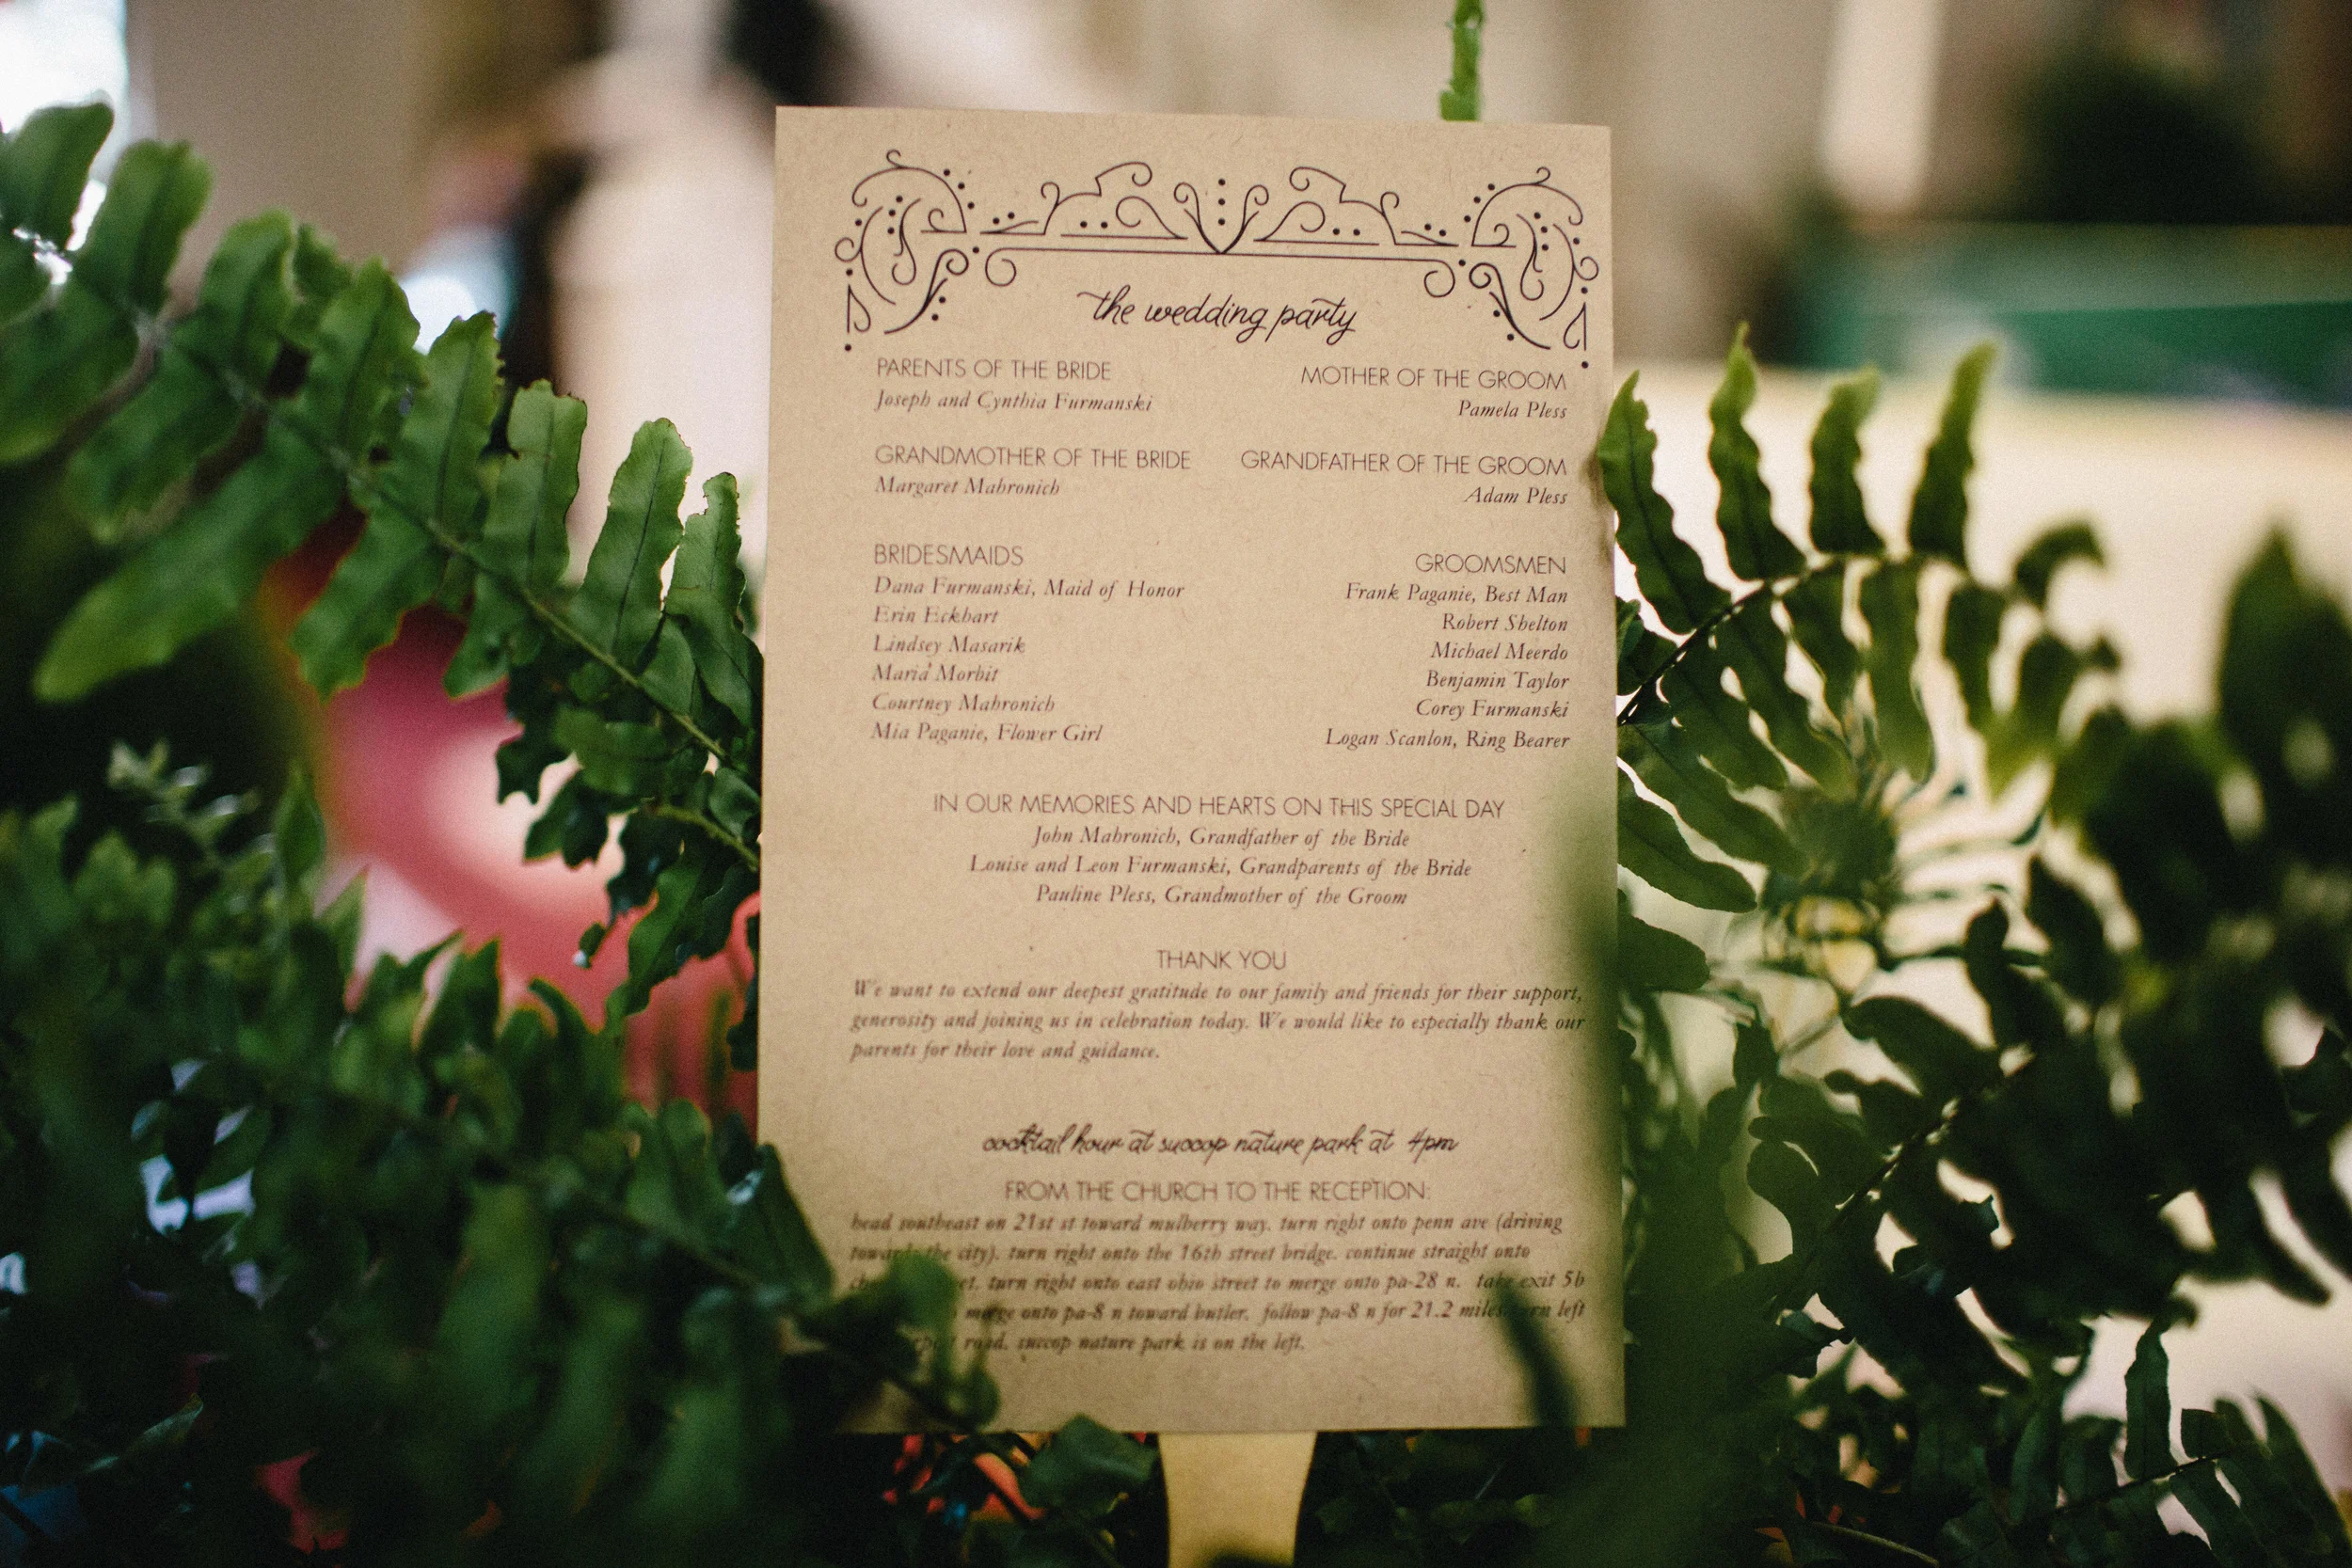 the wedding party
PARENTS OF THE BRIDE
Joseph and Cynthia Furmanski
MOTHER OF THE GROOM
Pamela Pless
GRANDMOTHER OF THE BRIDE
Margaret Mahronich
GRANDFATHER OF THE GROOM
Adam Pless
BRIDESMAIDS
Dana Furmanski, Maid of Honor
Erin Eckhart
Lindsey Masarik
Maria Morbit
Courtney Mahronich
Mia Paganie, Flower Girl
GROOMSMEN
Frank Paganie, Best Man
Robert Shelton
Michael Meerdo
Benjamin Taylor
Corey Furmanski
Logan Scanlon, Ring Bearer
IN OUR MEMORIES AND HEARTS ON THIS SPECIAL DAY
John Mahronich, Grandfather of the Bride
Louise and Leon Furmanski, Grandparents of the Bride
Pauline Pless, Grandmother of the Groom
THANK YOU
We want to extend our deepest gratitude to our family and friends for their support,
generosity and joining us in celebration today. We would like to especially thank our
parents for their love and guidance.
cocktail hour at succop nature park at 4pm
FROM THE CHURCH TO THE RECEPTION:
head southeast on 21st st toward mulberry way. turn right onto penn ave (driving
towards the city). turn right onto the 16th street bridge. continue straight onto
turn right onto east ohio street to merge onto pa-28 n. take exit 5b
merge onto pa-8 n toward butler. follow pa-8 n for 21.2 miles. left
road. succop nature park is on the left.